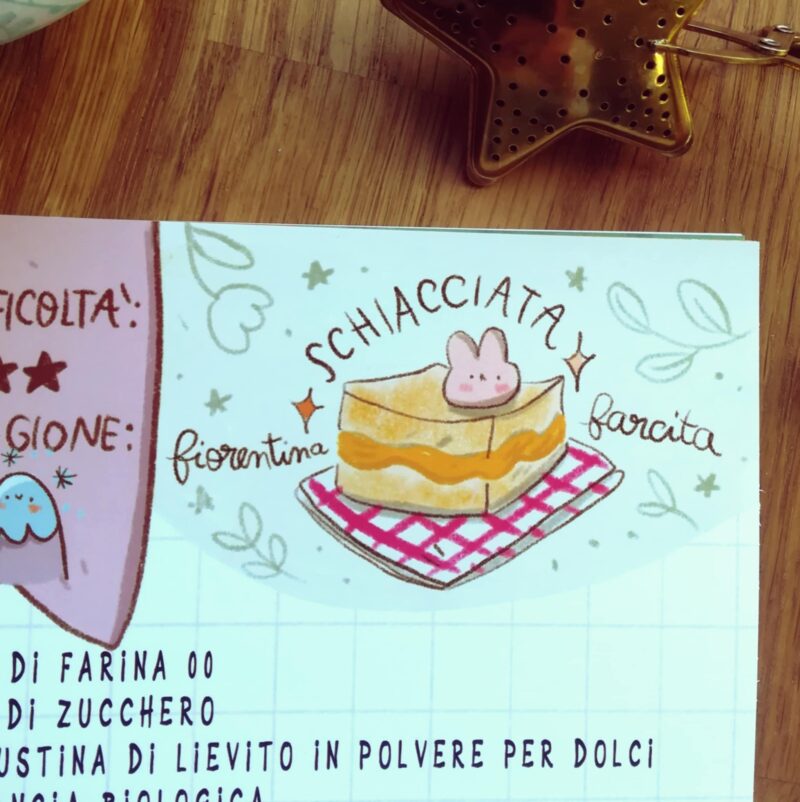 FICOLTÀ:
GIONE:
SCHIACCIATA
fiorentina farcita
DI FARINA 00
DI ZUCCHERO
USTINA DI LIEVITO IN POLVERE PER DOLCI
BIOLOGICA